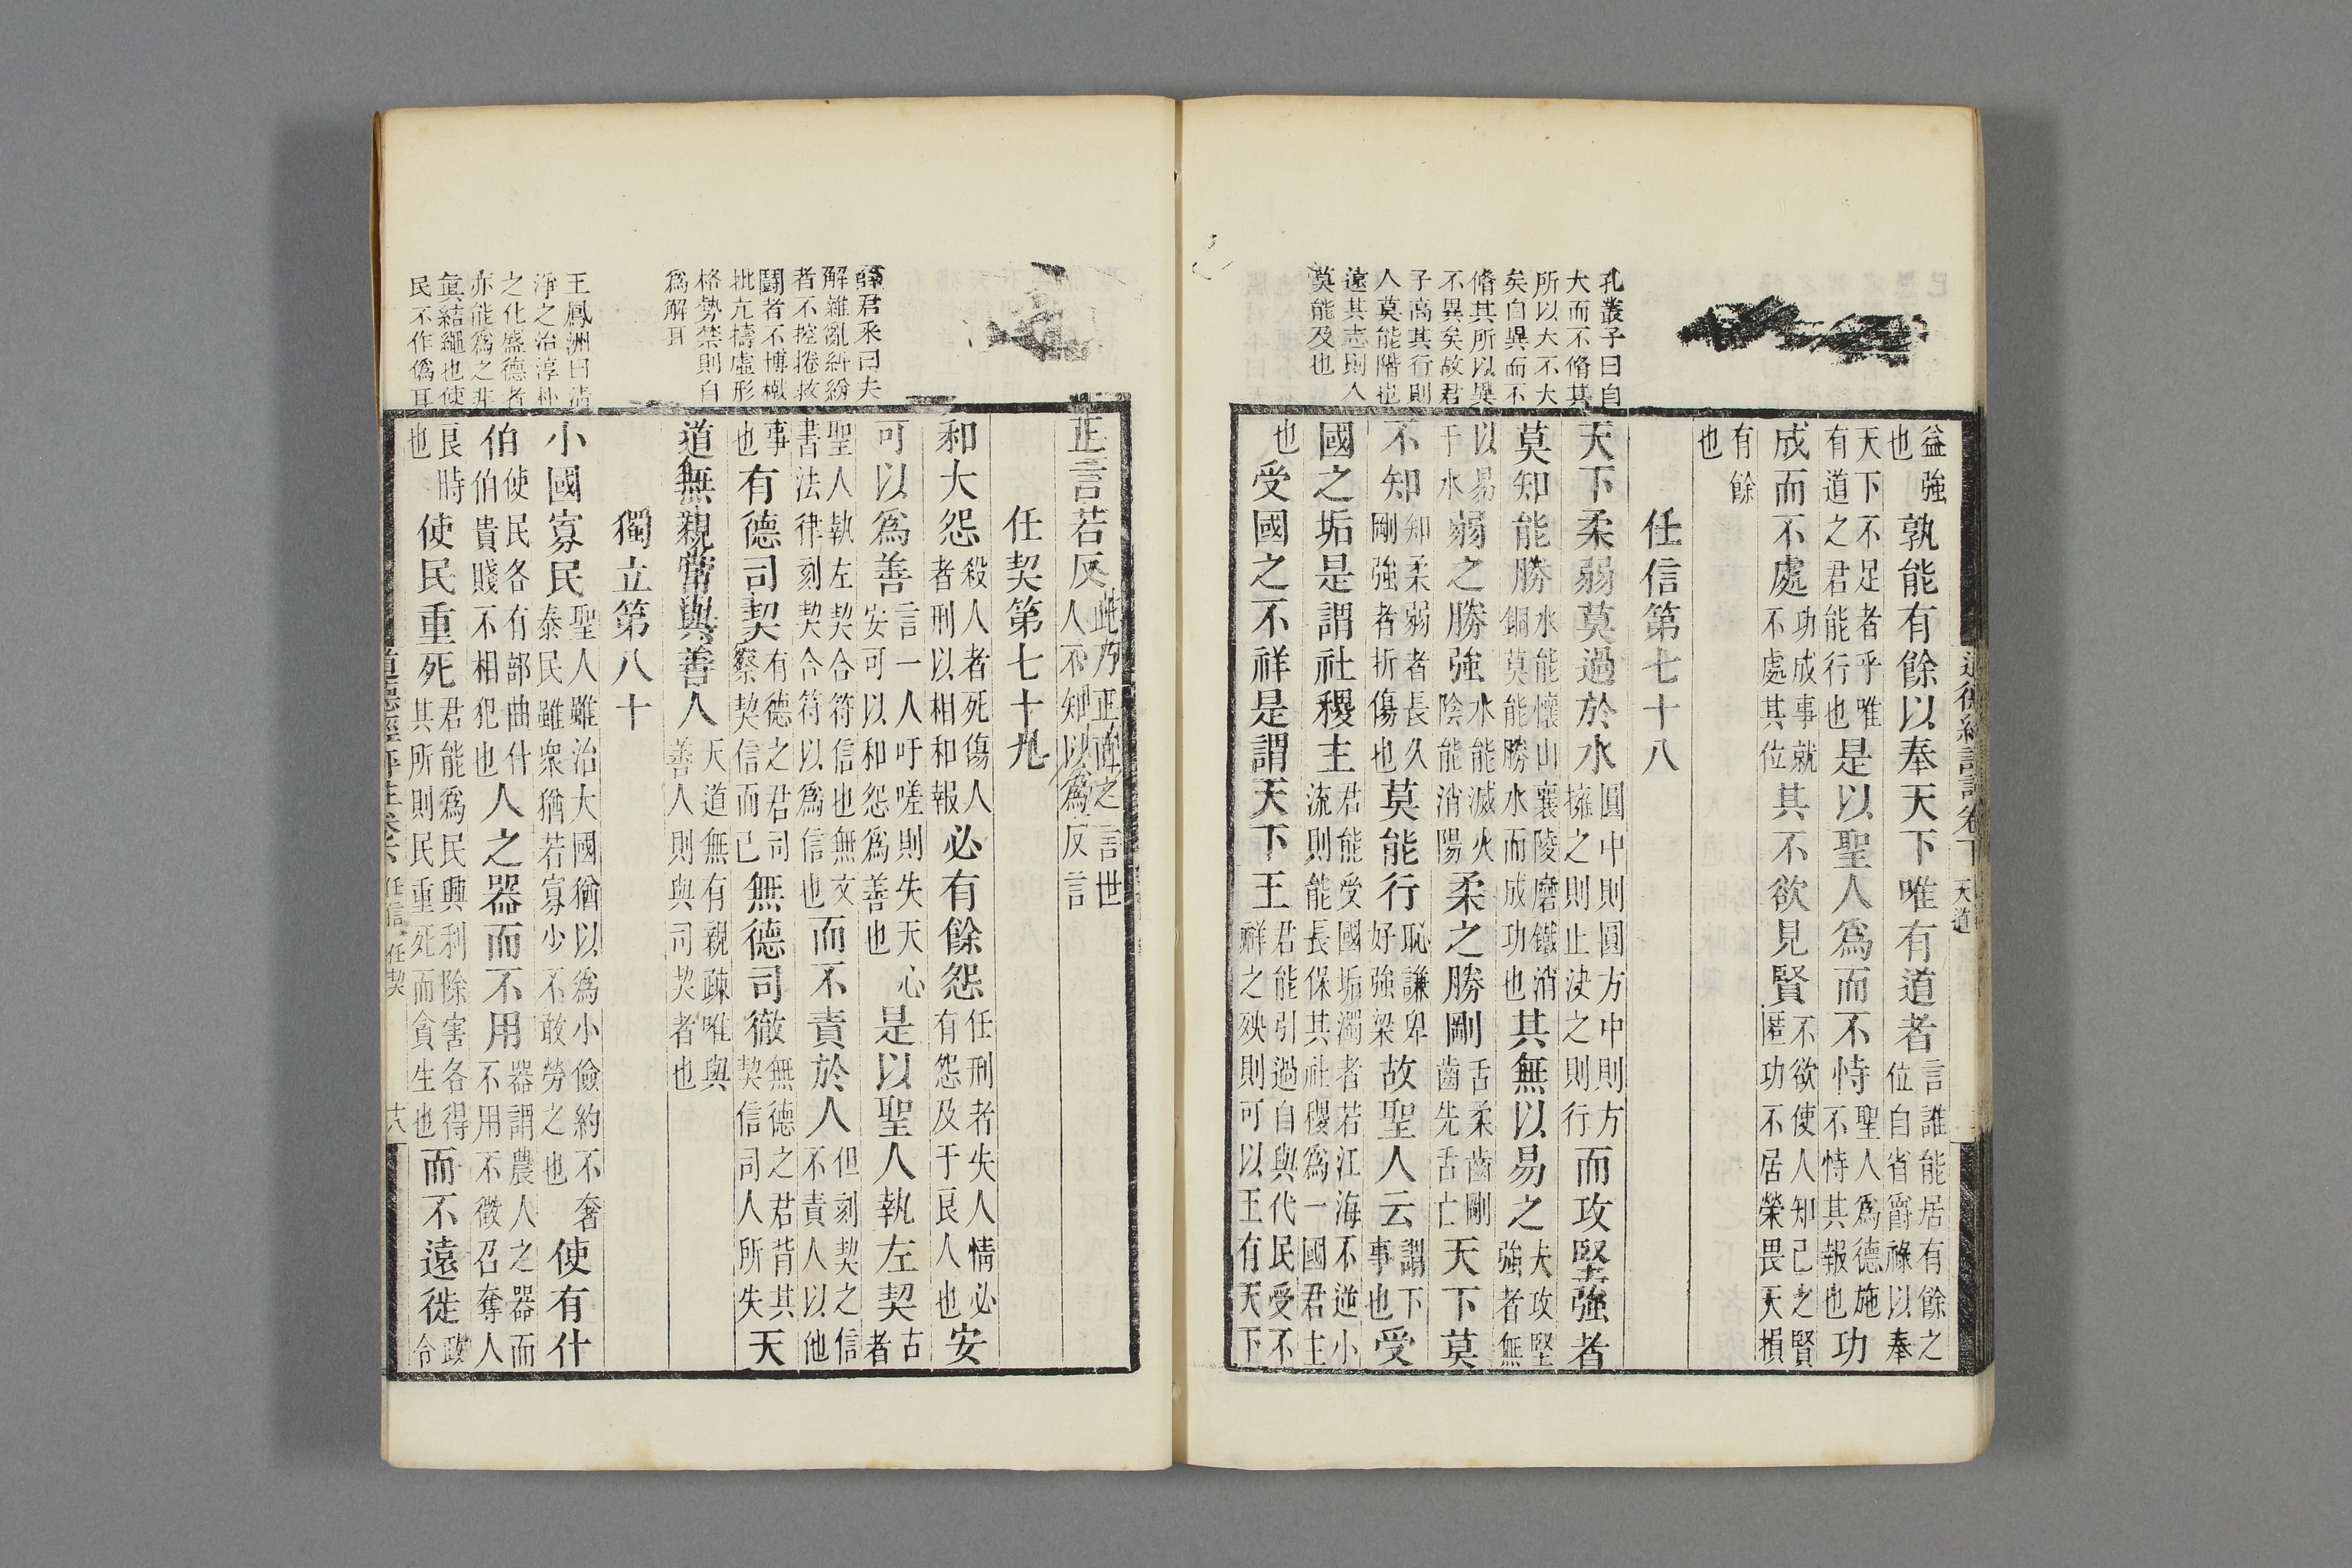 道德經評註卷下 天道
孔叢子曰自
大而不脩其
所以大不大
矣自異而不
脩其所以異
不異矣故君
子高其行則
人莫能階也
遠其志則人
莫能及也
益強也孰能有餘以奉天下唯有道者言誰能居有餘之位自省爵祿以奉
天下不足者乎唯有道之君能行也是以聖人爲而不恃聖人爲德施不恃其報也功
成而不處功成事就不處其位其不欲見賢不欲使人知己之賢匿功不居榮畏天損
有餘也
任信第七十八
天下柔弱莫過於水圓中則圓方中則方擁之則止決之則行而攻堅強者
莫知能勝水能懷山襄陵磨鐵消銅莫能勝水而成功也其無以易之夫攻堅強者無
以易于水弱之勝強水能滅火陰能消陽柔之勝剛舌柔齒剛齒先舌亡天下莫
不知知柔弱者長久剛強者折傷也莫能行恥謙卑好強梁故聖人云謂下事也受
國之垢是謂社稷主君能受國垢濁者若江海不逆小流則能長保其社稷爲一國君主
也受國之不祥是謂天下王君能引過自與代民受不祥之殃則可以王有天下
薛君采曰夫
解雜亂紛紛
者不控捲救
鬭者不博撠
批亢擣虛形
格勢禁則自
爲解耳
王鳳洲曰清
淨之治淳朴
之化盛德者
亦能爲之非
眞結繩也使
民不作僞耳
正言若反此乃正直之言世人不知以爲反言
任契第七十九
和大怨殺人者死傷人者刑以相和報必有餘怨任刑者失人情必有怨及于良人也安
可以爲善言一人吁嗟則失天心安可以和怨爲善也是以聖人執左契古者
聖人執左契合符信也無文書法律刻契合符以爲信也而不責於人但刻契之信不責人以他
事也有德司契有德之君司察契信而已無德司徹無德之君背其契信司人所失天
道無親常與善人天道無有親疎唯與善人則與司契者也
獨立第八十
小國寡民聖人雖治大國猶以爲小儉約不奢泰民雖衆猶若寡少不敢勞之也使有什
伯使民各有部曲什伯貴賤不相犯也人之器而不用器謂農人之器而不用不徵召奪人
良時也使民重死君能爲民興利除害各得其所則民重死而貪生也而不遠徙政令
道德經評註卷下 任信 任契 六